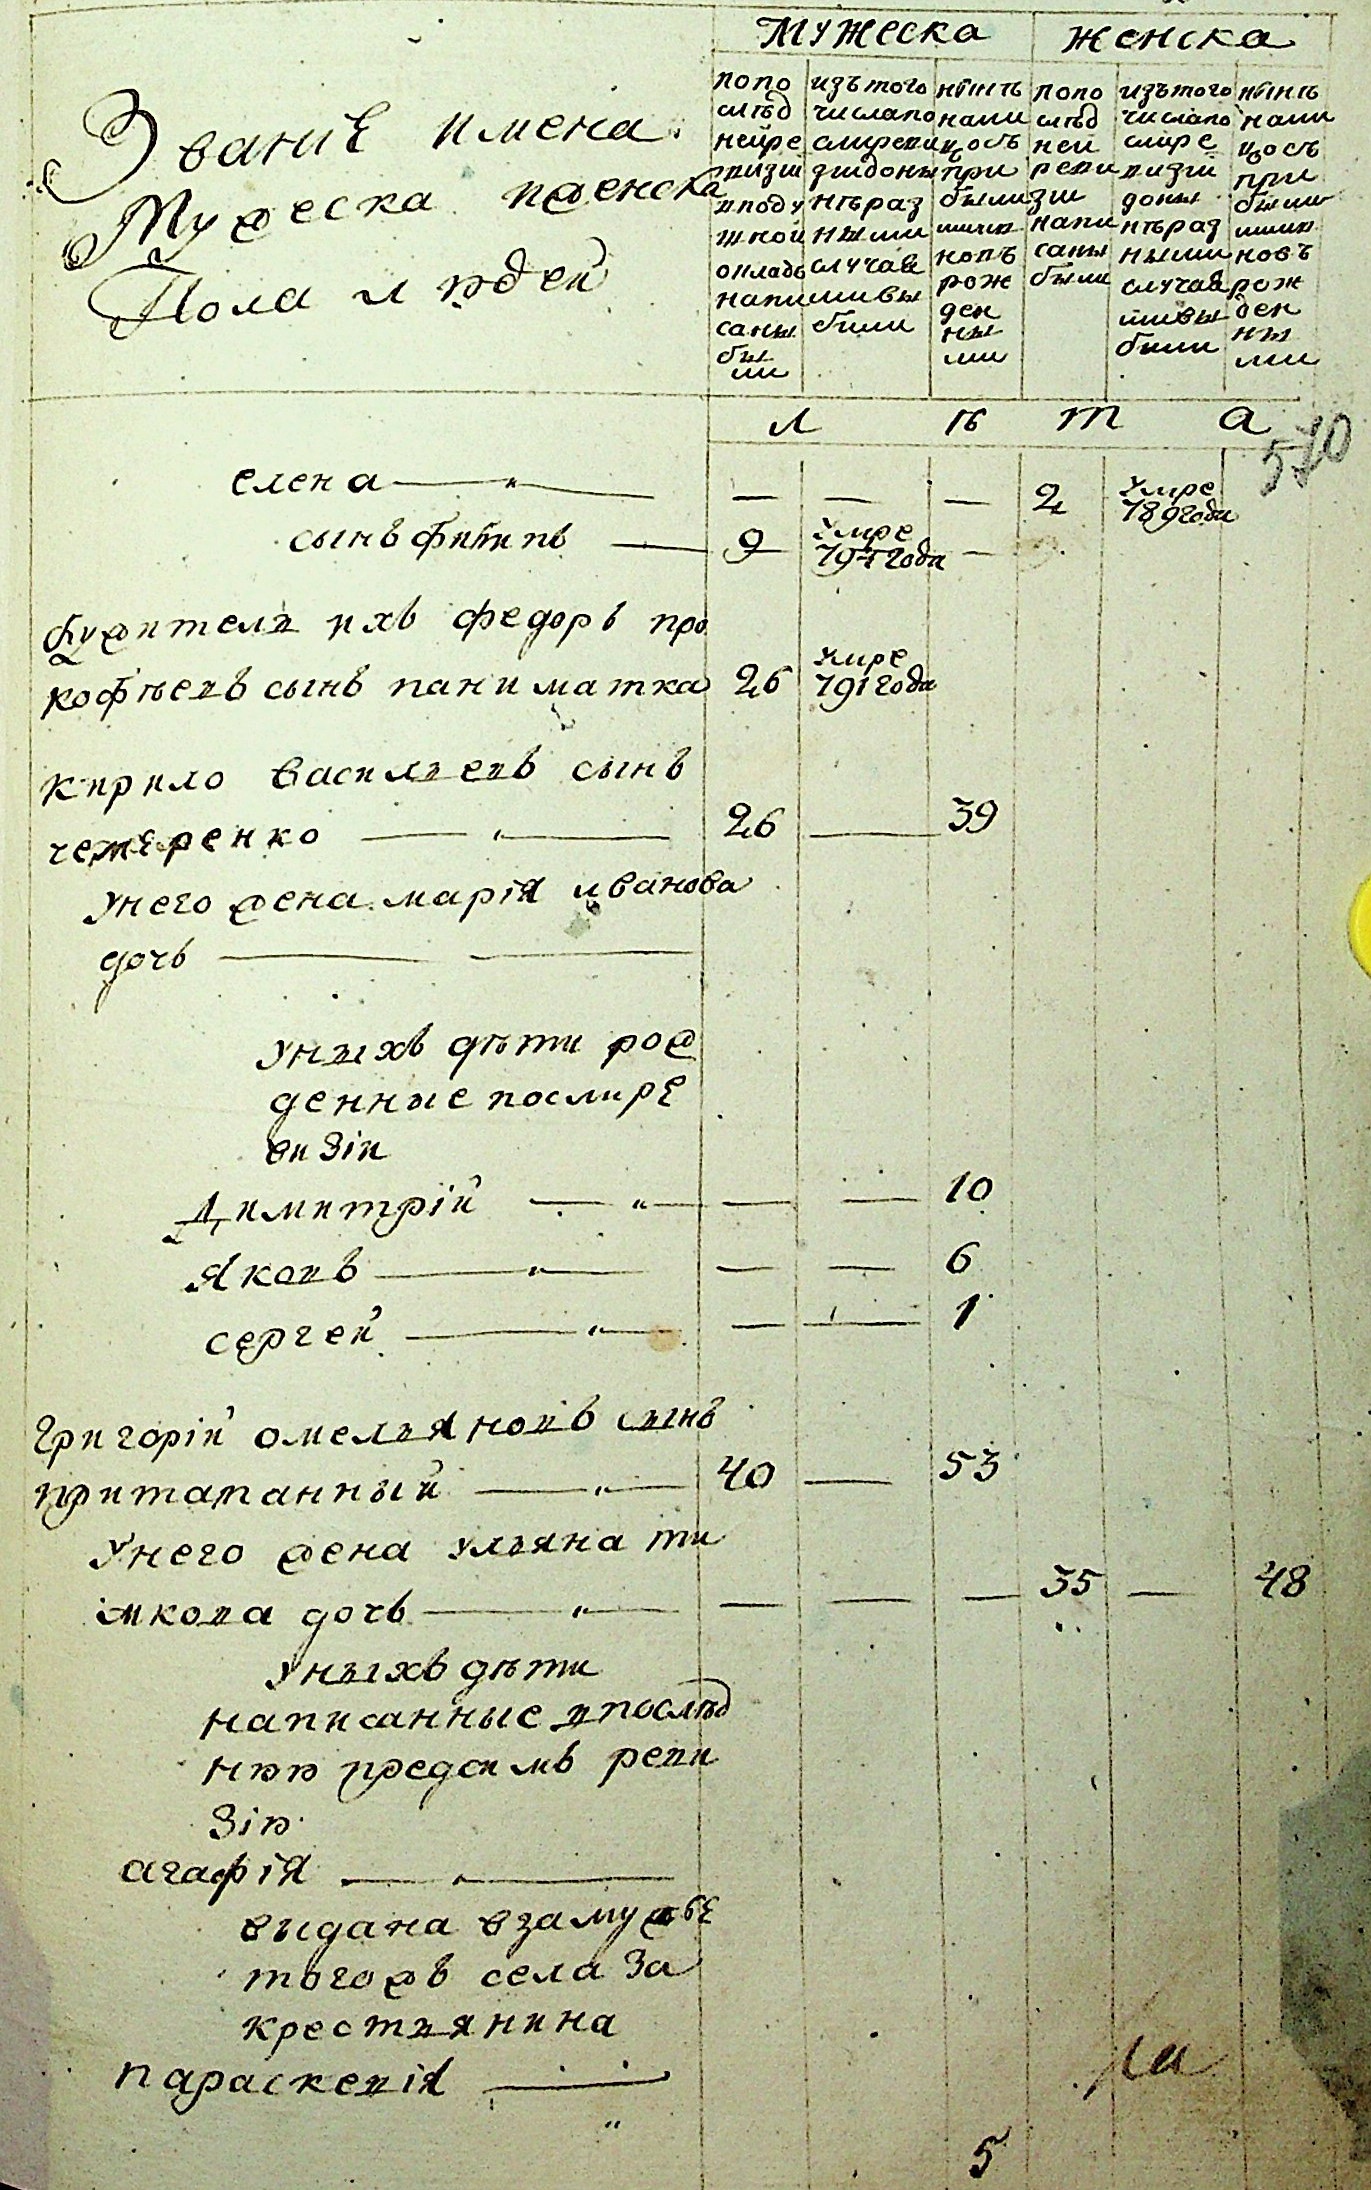 Мужеска женска
Званиե имена
Мужеска иженска
Пола людей
попо слѣд нейре визіи вподу шной окладъ написаны были
изътого числапо сиревизіидоны нѣраз ными случаи ивы были
нынѣ нали цость при былизновъ рож ден ны ми
попо слѣд ней реви зіи напи саны были
изътого числапо сире визіи доны нѣраз ными случая выбыли
нынѣ нали цость при были новъ рож ден ны ми
л ѣ т а
570
елена — — — — 2 Умре 789года
сынъ филипъ — 9 Умре года —
ихъ федоръ про
кофѣевъ сынъ паниматка 26 Умре 791года
кирило васильевъ сынъ
чемеренко — 26 — 39
Унего жена марія иванова
дочь —
Унихъ дѣти рож
денные послире
визіи
Димитрій — — — 10
Яковъ — — — 6
сергей — — — 1
Григорій омельяновъ сынъ
притаманный — 40 — 53
Унего жена ульяна ти
мкова дочь — — — — 35 — 48
Унихъ дѣти
написанные впослѣд
нюю предсимъ реви
зію
агафія —
выдана взамужье
тогожъ села за
крестьянина
параскевія —
5